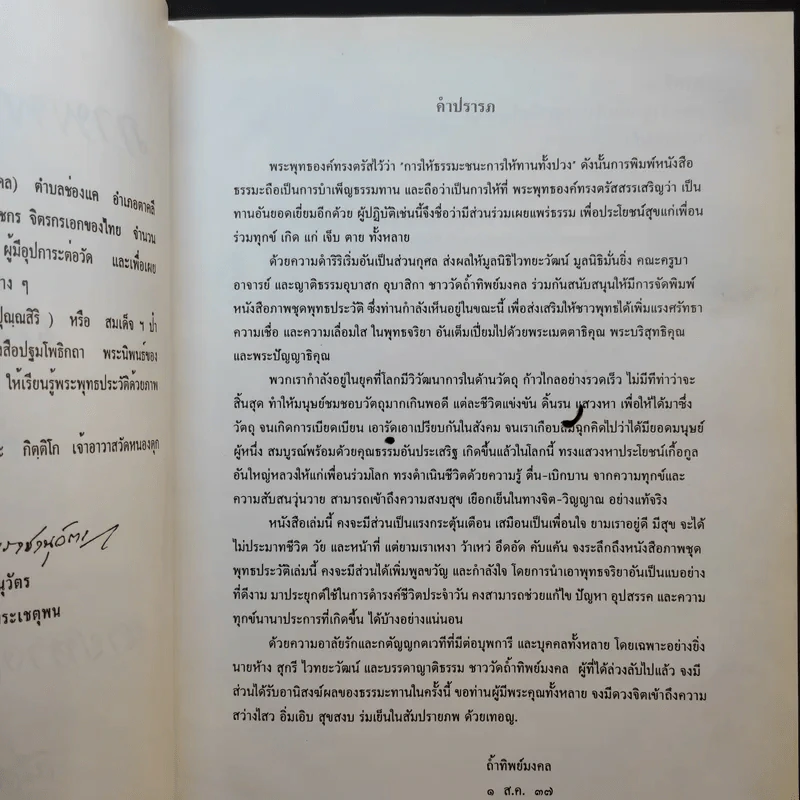 คล) ตำบลช่องแค อำเภอตาคลี
ชกร จิตรกรเอกของไทย จำนวน
ผู้มีอุปการะต่อวัด และเพื่อเผย
าง ๆ
ปุณฺณสิริ ) หรือ สมเด็จ ฯ ป๋า
งสือปฐมโพธิกถา พระนิพนธ์ของ
ให้เรียนรู้พระพุทธประวัติด้วยภาพ
กิตฺติโก เจ้าอาวาสวัดหนองดุก
นุวัตร
ระเชตุพน
คำปรารภ
พระพุทธองค์ทรงตรัสไว้ว่า 'การให้ธรรมะชนะการให้ทานทั้งปวง' ดังนั้นการพิมพ์หนังสือ
ธรรมะถือเป็นการบำเพ็ญธรรมทาน และถือว่าเป็นการให้ที่ พระพุทธองค์ทรงตรัสสรรเสริญว่า เป็น
ทานอันยอดเยี่ยมอีกด้วย ผู้ปฏิบัติเช่นนี้จึงชื่อว่ามีส่วนร่วมเผยแพร่ธรรม เพื่อประโยชน์สุขแก่เพื่อน
ร่วมทุกข์ เกิด แก่ เจ็บ ตาย ทั้งหลาย
ด้วยความดำริริเริ่มอันเป็นส่วนกุศล ส่งผลให้มูลนิธิไวทยะวัฒน์ มูลนิธิมั่นยิ่ง คณะครูบา
อาจารย์ และญาติธรรมอุบาสก อุบาสิกา ชาววัดถ้ำทิพย์มงคล ร่วมกันสนับสนุนให้มีการจัดพิมพ์
หนังสือภาพชุดพุทธประวัติ ซึ่งท่านกำลังเห็นอยู่ในขณะนี้ เพื่อส่งเสริมให้ชาวพุทธได้เพิ่มแรงศรัทธา
ความเชื่อ และความเลื่อมใส ในพุทธจริยา อันเต็มเปี่ยมไปด้วยพระเมตตาธิคุณ พระบริสุทธิคุณ
และพระปัญญาธิคุณ
พวกเรากำลังอยู่ในยุคที่โลกมีวิวัฒนาการในด้านวัตถุ ก้าวไกลอย่างรวดเร็ว ไม่มีทีท่าว่าจะ
สิ้นสุด ทำให้มนุษย์ชมชอบวัตถุมากเกินพอดี แต่ละชีวิตแข่งขัน ดิ้นรน แสวงหา เพื่อให้ได้มาซึ่ง
วัตถุ จนเกิดการเบียดเบียน เอารัดเอาเปรียบกันในสังคม จนเราเกือบลืมฉุกคิดไปว่าได้มียอดมนุษย์
ผู้หนึ่ง สมบูรณ์พร้อมด้วยคุณธรรมอันประเสริฐ เกิดขึ้นแล้วในโลกนี้ ทรงแสวงหาประโยชน์เกื้อกูล
อันใหญ่หลวงให้แก่เพื่อนร่วมโลก ทรงดำเนินชีวิตด้วยความรู้ ตื่น-เบิกบาน จากความทุกข์และ
ความสับสนวุ่นวาย สามารถเข้าถึงความสงบสุข เยือกเย็นในทางจิต-วิญญาณ อย่างแท้จริง
หนังสือเล่มนี้ คงจะมีส่วนเป็นแรงกระตุ้นเตือน เสมือนเป็นเพื่อนใจ ยามเราอยู่ดี มีสุข จะได้
ไม่ประมาทชีวิต วัย และหน้าที่ แต่ยามเราเหงา ว้าเหว่ อึดอัด คับแค้น จงระลึกถึงหนังสือภาพชุด
พุทธประวัติเล่มนี้ คงจะมีส่วนได้เพิ่มพูลขวัญ และกำลังใจ โดยการนำเอาพุทธจริยาอันเป็นแบบอย่าง
ที่ดีงาม มาประยุกต์ใช้ในการดำรงค์ชีวิตประจำวัน คงสามารถช่วยแก้ไข ปัญหา อุปสรรค และความ
ทุกข์นานาประการที่เกิดขึ้น ได้บ้างอย่างแน่นอน
ด้วยความอาลัยรักและกตัญญูกตเวทีที่มีต่อบุพการี และบุคคลทั้งหลาย โดยเฉพาะอย่างยิ่ง
นายห้าง สุกรี ไวทยะวัฒน์ และบรรดาญาติธรรม ชาววัดถ้ำทิพย์มงคล ผู้ที่ได้ล่วงลับไปแล้ว จงมี
ส่วนได้รับอานิสงฆ์ผลของธรรมะทานในครั้งนี้ ขอท่านผู้มีพระคุณทั้งหลาย จงมีดวงจิตเข้าถึงความ
สว่างไสว อิ่มเอิบ สุขสงบ ร่มเย็นในสัมปรายภพ ด้วยเทอญ.
ถ้ำทิพย์มงคล
๑ ส.ค. ๓๗